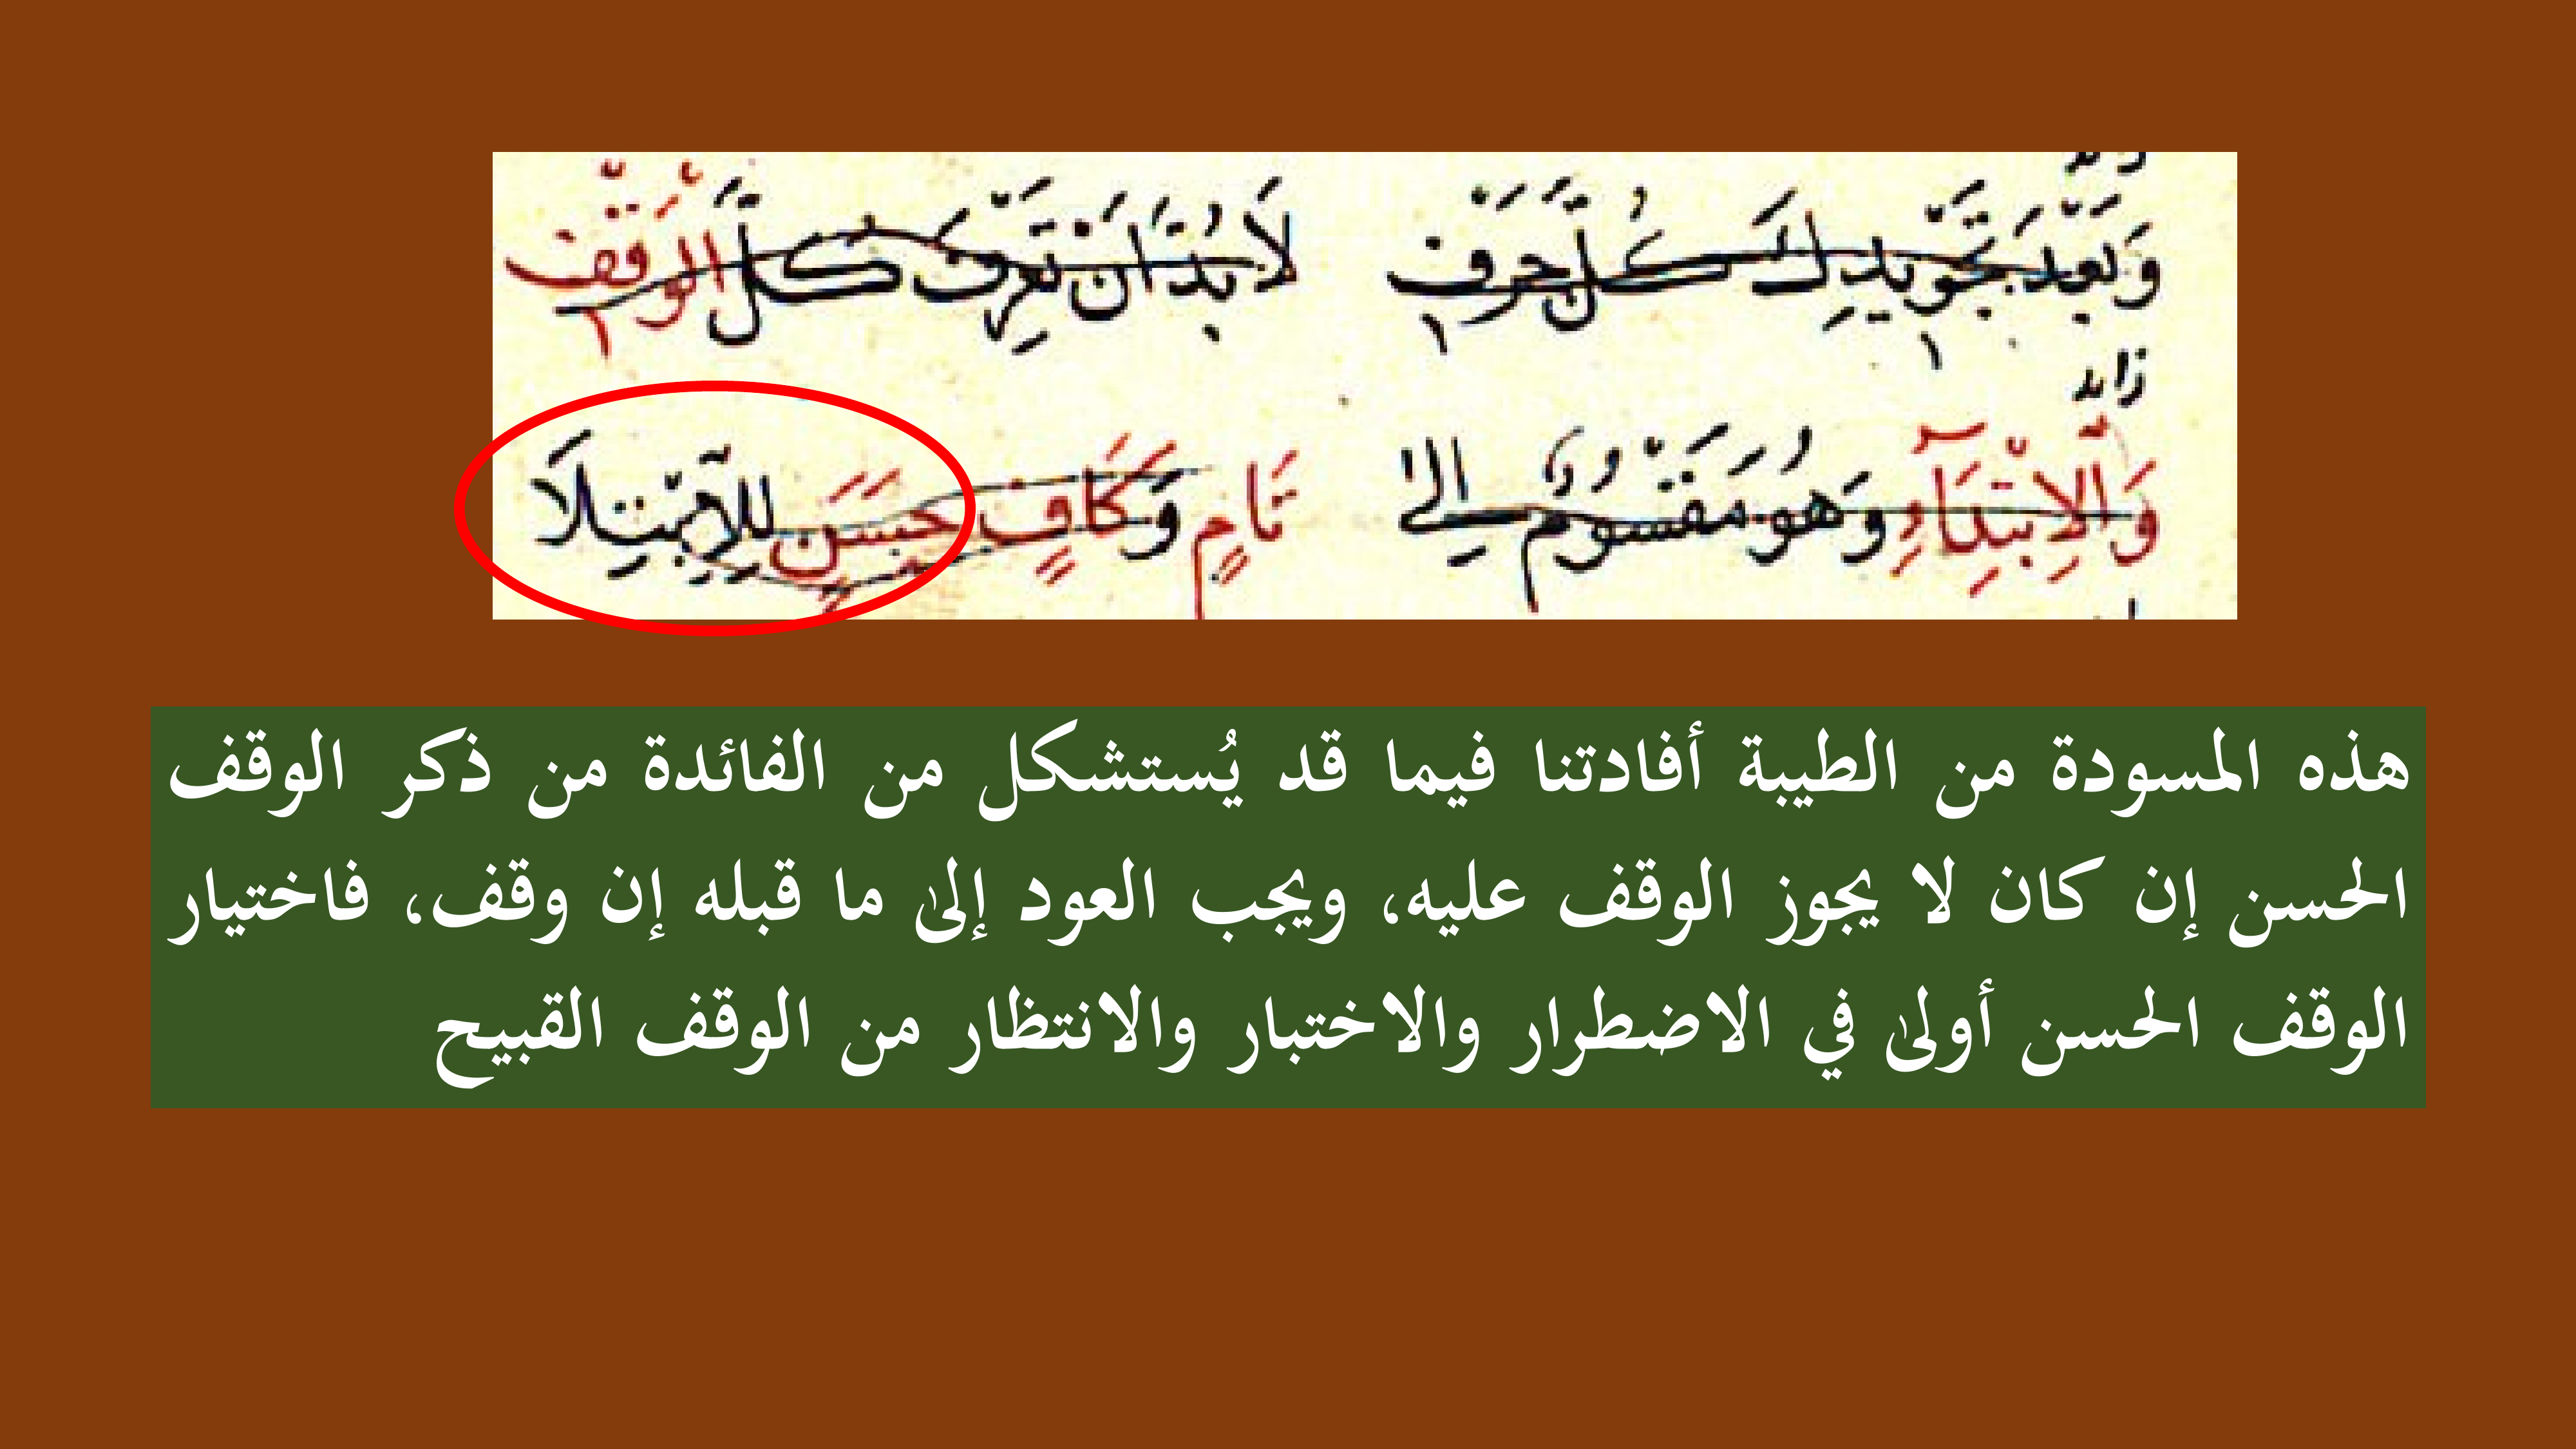 وَبَعْدَ تَجْوِيدِكَ كُلَّ حَرْفِ لَا بُدَّ أَنْ تَعْرِفَ كُلَّ الْوَقْفِ
زائد
وَالِابْتِدَآءِ وَهُوَ مَقْسُومٌ إِلَىٰ تَامٍ وَكَافٍ حَسَنٍ لِلِابْتِلَا
هذه المسودة من الطيبة أفادتنا فيما قد يُستشكل من الفائدة من ذكر الوقف
الحسن إن كان لا يجوز الوقف عليه، ويجب العود إلىٰ ما قبله إن وقف، فاختيار
الوقف الحسن أولىٰ في الاضطرار والاختبار والانتظار من الوقف القبيح